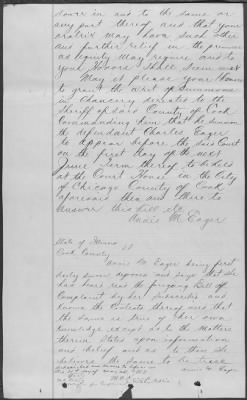 dower in and to the same or
any part thereof and that your
oratrix may have such other
and further relief in the premises
as equity may require and to
your Honors shall seem meet
May it please your Honors
to grant the writ of Summons
in Chancery directed to the
Sheriff of said County of Cook
Commanding him that he summon
the defendant Charles Eager
to appear before the said Court
on the first day of the next
June Term thereof to be held
at the Court House in the City
of Chicago County of Cook
aforesaid then and there to
answer this bill etc
Annie M. Eager
State of Illinois
Cook County ss
Annie M. Eager being first
duly sworn deposes and says that she
has heard read the foregoing Bill of
Complaint by her subscribed and
knows the Contents thereof and that
the same is true of her own
knowledge except as to the matters
therein stated upon information
and belief and as to them she
believes the same to be true
Subscribed and sworn to before me
Annie M. Eager